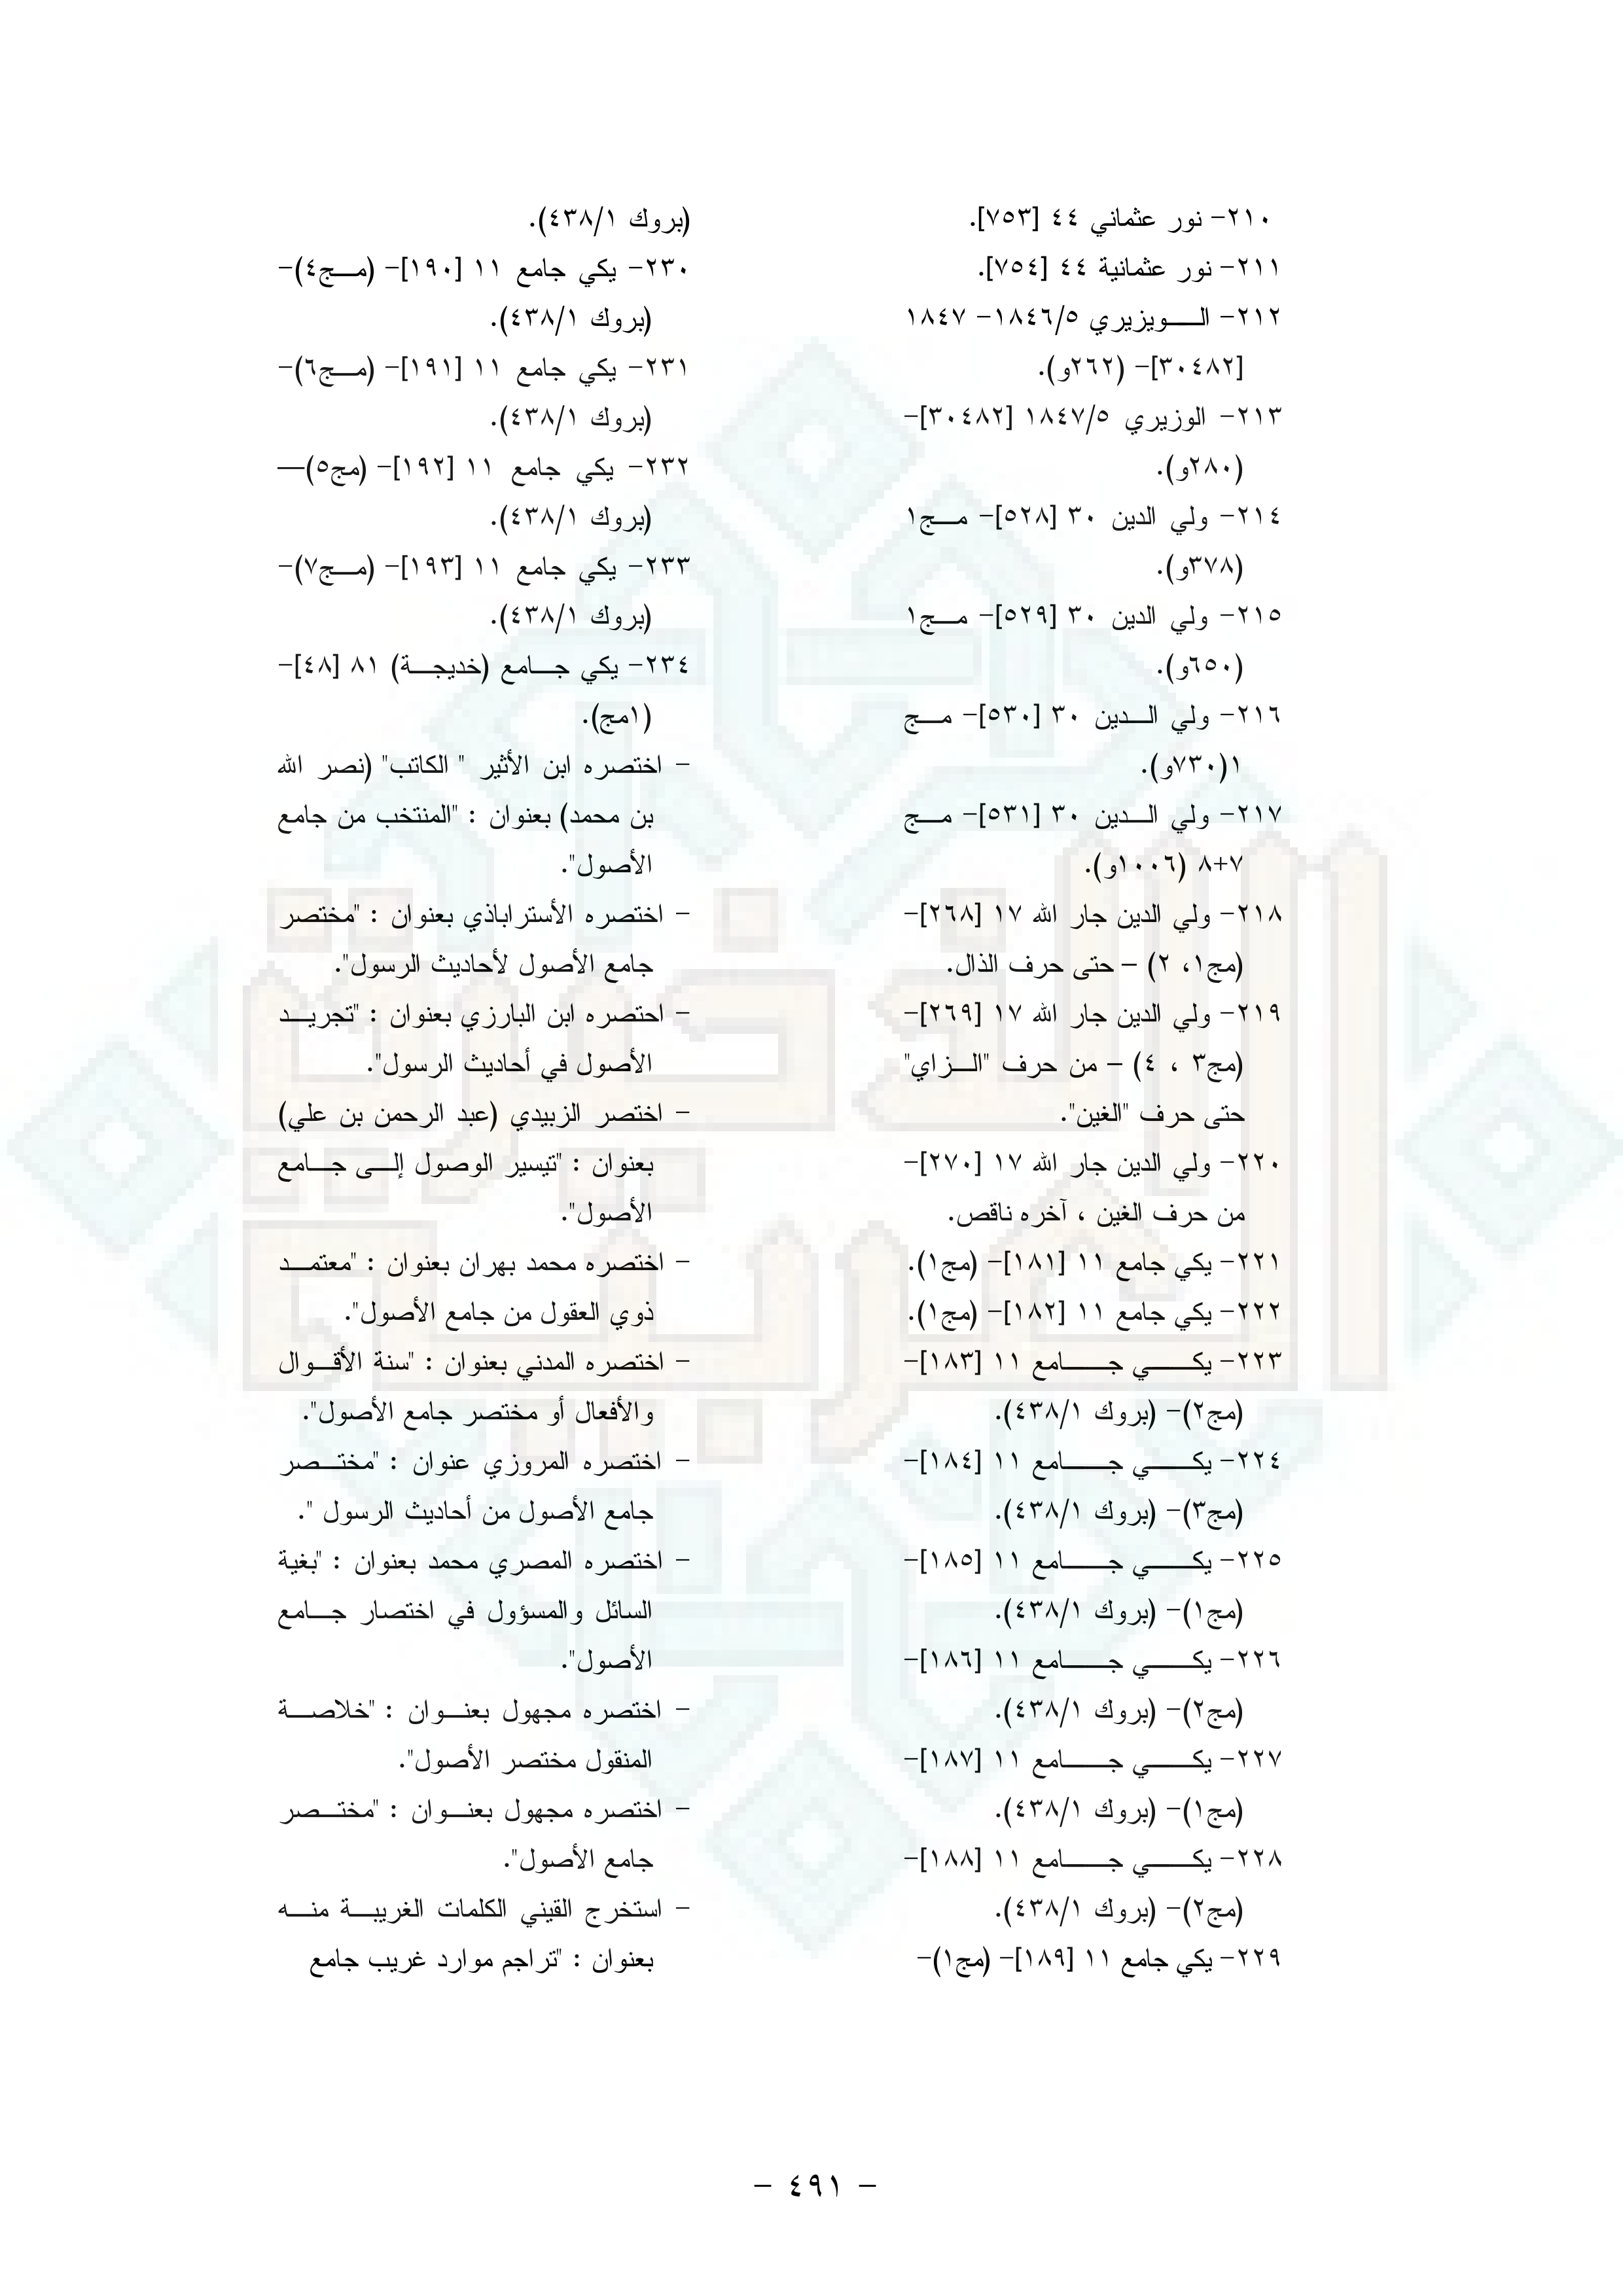 ٢١٠- نور عثماني ٤٤ [٧٥٣].
٢١١- نور عثمانية ٤٤ [٧٥٤].
٢١٢- الـويزيري ١٨٤٦/٥- ١٨٤٧
[٣٠٤٨٢]- (٢٦٢و).
٢١٣- الوزيري ١٨٤٧/٥ [٣٠٤٨٢]-
(٢٨٠و).
٢١٤- ولي الدين ٣٠ [٥٢٨]- مـج١
(٣٧٨و).
٢١٥- ولي الدين ٣٠ [٥٢٩]- مـج١
(٦٥٠و).
٢١٦- ولي الـدين ٣٠ [٥٣٠]- مـج
١(٧٣٠و).
٢١٧- ولي الـدين ٣٠ [٥٣١]- مـج
٧+٨ (١٠٠٦و).
٢١٨- ولي الدين جار الله ١٧ [٢٦٨]-
(مج١، ٢) – حتى حرف الذال.
٢١٩- ولي الدين جار الله ١٧ [٢٦٩]-
(مج٣ ، ٤) – من حرف "الـزاي"
حتى حرف "الغين".
٢٢٠- ولي الدين جار الله ١٧ [٢٧٠]-
من حرف الغين ، آخره ناقص.
٢٢١- يكي جامع ١١ [١٨١]- (مج١).
٢٢٢- يكي جامع ١١ [١٨٢]- (مج١).
٢٢٣- يكـي جـامع ١١ [١٨٣]-
(مج٢)- (بروك ٤٣٨/١).
٢٢٤- يكـي جـامع ١١ [١٨٤]-
(مج٣)- (بروك ٤٣٨/١).
٢٢٥- يكـي جـامع ١١ [١٨٥]-
(مج١)- (بروك ٤٣٨/١).
٢٢٦- يكـي جـامع ١١ [١٨٦]-
(مج٢)- (بروك ٤٣٨/١).
٢٢٧- يكـي جـامع ١١ [١٨٧]-
(مج١)- (بروك ٤٣٨/١).
٢٢٨- يكـي جـامع ١١ [١٨٨]-
(مج٢)- (بروك ٤٣٨/١).
٢٢٩- يكي جامع ١١ [١٨٩]- (مج١)-
(بروك ٤٣٨/١).
٢٣٠- يكي جامع ١١ [١٩٠]- (مـج٤)-
(بروك ٤٣٨/١).
٢٣١- يكي جامع ١١ [١٩١]- (مـج٦)-
(بروك ٤٣٨/١).
٢٣٢- يكي جامع ١١ [١٩٢]- (مج٥)—
(بروك ٤٣٨/١).
٢٣٣- يكي جامع ١١ [١٩٣]- (مـج٧)-
(بروك ٤٣٨/١).
٢٣٤- يكي جـامع (خديجـة) ٨١ [٤٨]-
(١مج).
- اختصره ابن الأثير " الكاتب" (نصر الله
بن محمد) بعنوان : "المنتخب من جامع
الأصول".
- اختصره الأستراباذي بعنوان : "مختصر
جامع الأصول لأحاديث الرسول".
- احتصره ابن البارزي بعنوان : "تجريـد
الأصول في أحاديث الرسول".
- اختصر الزبيدي (عبد الرحمن بن علي)
بعنوان : "تيسير الوصول إلـى جـامع
الأصول".
- اختصره محمد بهران بعنوان : "معتمـد
ذوي العقول من جامع الأصول".
- اختصره المدني بعنوان : "سنة الأقـوال
والأفعال أو مختصر جامع الأصول".
- اختصره المروزي عنوان : "مختـصر
جامع الأصول من أحاديث الرسول ".
- اختصره المصري محمد بعنوان : "بغية
السائل والمسؤول في اختصار جـامع
الأصول".
- اختصره مجهول بعنـوان : "خلاصـة
المنقول مختصر الأصول".
- اختصره مجهول بعنـوان : "مختـصر
جامع الأصول".
- استخرج القيني الكلمات الغريبـة منـه
بعنوان : "تراجم موارد غريب جامع
- ٤٩١ -